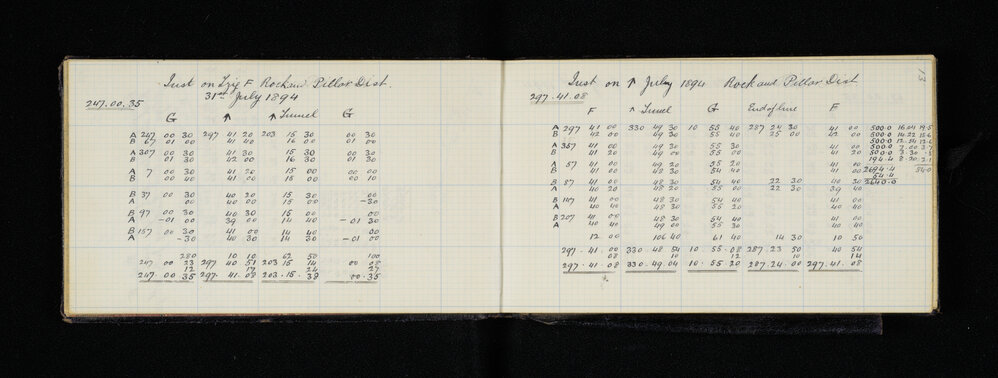 Inst on Trig F Rockand Pillar Dist.
31st July 1894
247.00.35
G ↑ ↑ Tunnel G
A 247 00 30 297 41 20 203 15 30 00 30
B 67 01 00 41 40 16 00 01 00
A 307 00 30 41 30 15 30 00 30
B 01 30 42 00 16 30 01 30
A 7 00 30 41 20 15 00 00 00
B 00 40 41 00 15 00 00 10
B 37 00 30 40 20 15 30 00
A 00 40 00 15 00 -30
B 97 00 30 40 30 15 00 00
A -01 00 39 00 14 40 -01 30
B 157 00 30 41 00 14 40 00
A -30 40 30 14 30 -01 00
280 10 10 62 50 100
247 00 23 297 40 51 203 15 14 00 08
12 17 24 27
247.00.35 297.41.08 203.15.38 00.35
13
Inst on ↑ July 1894 Rock and Pillar Dist
297.41.08
F ↑ Tunnel G End of line F
A 297 41 00 330 49 30 10 55 40 287 24 30 41 00 500.0 16.04 19.5
B 42 00 49 30 55 40 25 00 42 00 500.0 14.22 15.6
A 357 41 00 49 30 55 30 41 00 500.0 12.54 12.0
B 41 20 49 00 55 00 41 20 500.0 7.00 3.7
A 57 41 00 49 20 55 20 41 00 194.4 8.20 2.1
B 41 00 48 30 54 40 41 00 2694.4 54.0
B 87 41 00 48 30 54 40 22 30 40 30 2640.0
A 40 20 48 20 55 00 22 30 39 40
B 147 41 00 48 30 54 40 41 00
A 40 40 48 30 55 20 40 40
B 207 41 00 48 30 54 40 41 00
A 40 40 49 00 55 30 40 40
12 00 106 40 61 40 14 30 10 50
297.41 00 330 48 54 10 55.08 287.23 50 40 54
08 10 12 10 14
297.41.08 330.49.04 10.55.20 287.24.00 297.41.08